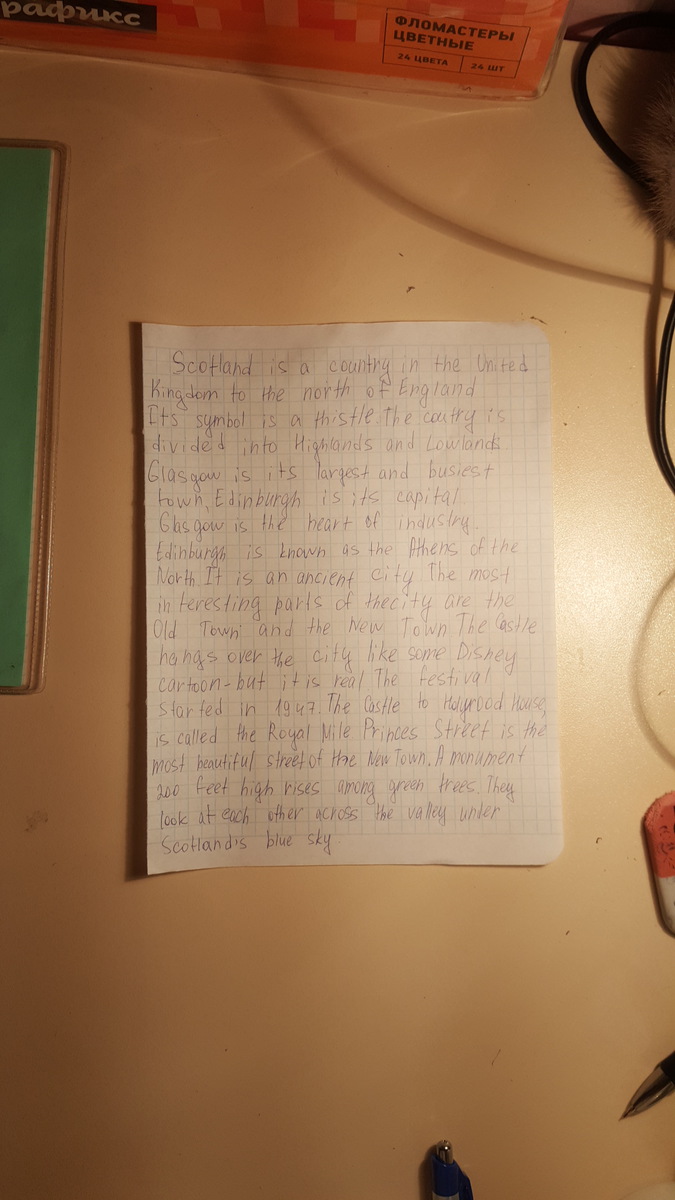 рафикс
ФЛОМАСТЕРЫ
ЦВЕТНЫЕ
24 ЦВЕТА 24 ШТ
Scotland is a country in the United
Kingdom to the north of England
Its symbol is a thistle. The coutry is
divided into Highlands and Lowlands.
Glasgow is its largest and busiest
town, Edinburgh is its capital.
Glasgow is the heart of industry.
Edinburgh is known as the Athens of the
North. It is an ancient city The most
interesting parts of thecity are the
Old Town and the New Town The Castle
hangs over the city like some Disney
cartoon-but it is real The festival
started in 1947. The Castle to Holyrood House,
is called the Royal Mile Princes Street is the
most beautiful street of the New Town. A monument
200 feet high rises among green trees. They
look at each other across the valley under
Scotland's blue sky.